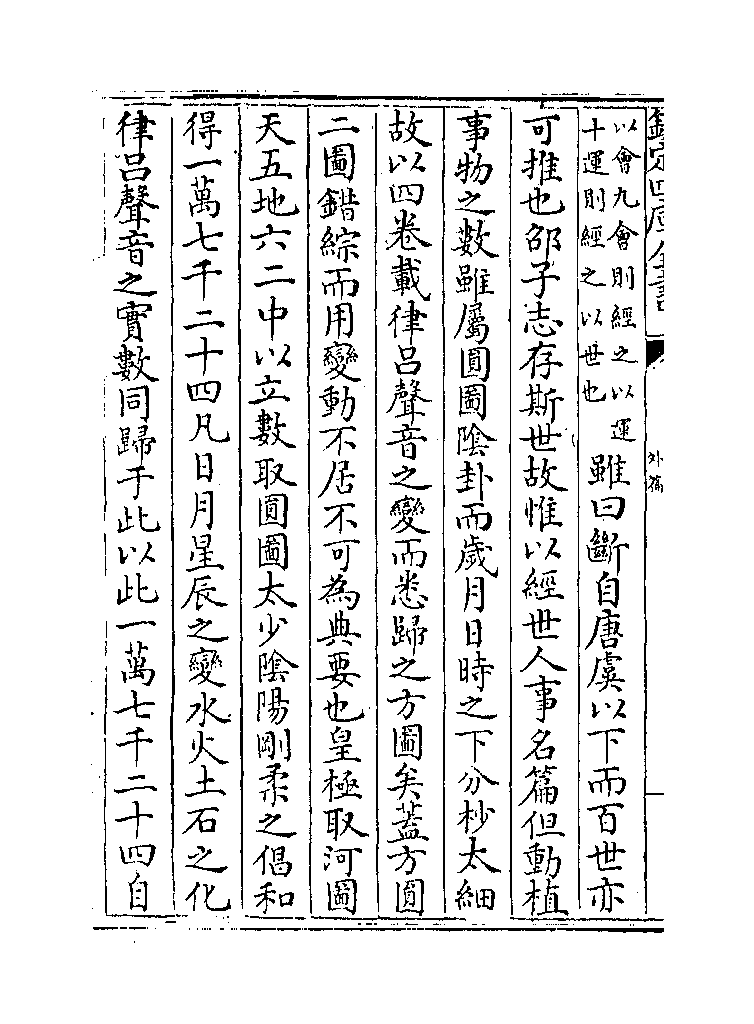 欽定四庫全書
外篇
以會九會則經之以運
十運則經之以世也
雖曰斷自唐虞以下而百世亦
可推也邵子志存斯世故惟以經世人事名篇但動植
事物之數雖屬圓圖陰卦而歲月日時之下分杪太細
故以四卷載律呂聲音之變而悉歸之方圖矣蓋方圓
二圖錯綜而用變動不居不可為典要也皇極取河圖
天五地六二中以立數取圓圖太少陰陽剛柔之倡和
得一萬七千二十四凡日月星辰之變水火土石之化
律呂聲音之實數同歸于此以此一萬七千二十四自